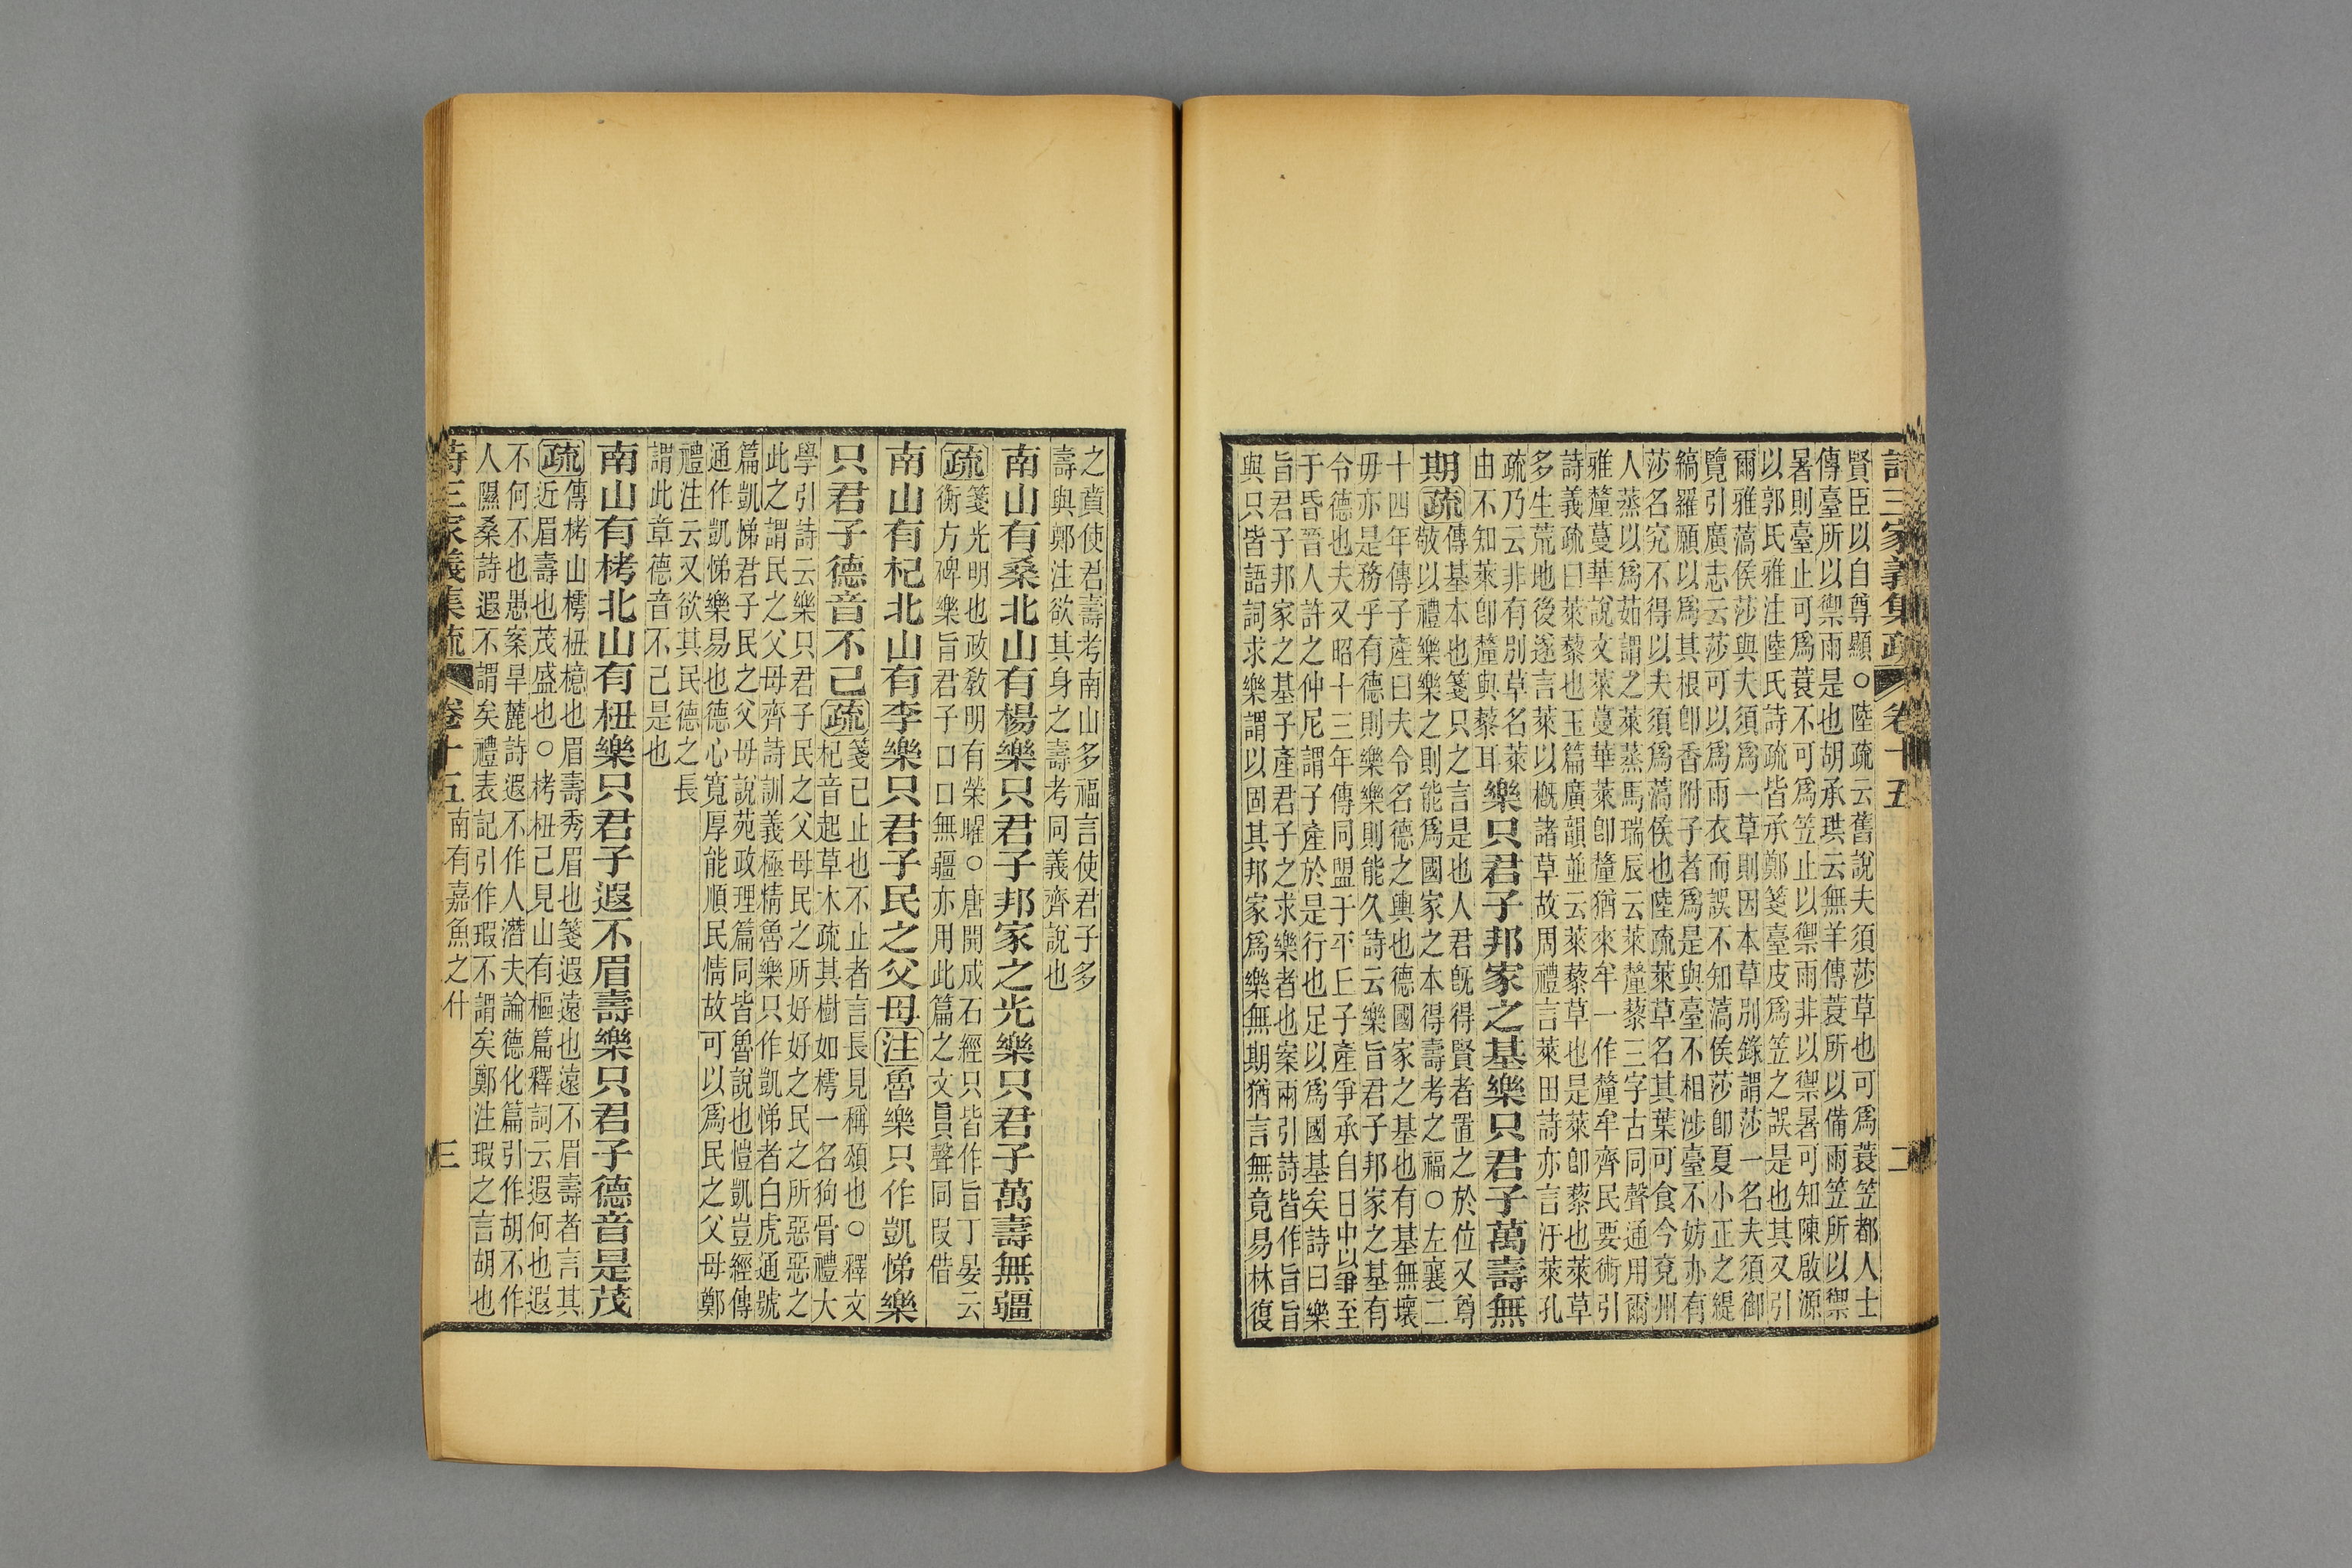 詩三家義集疏 卷十五 二
賢臣以自尊顯○陸疏云舊說夫須莎草也可爲蓑笠都人士
傳臺所以禦雨是也胡承珙云無羊傳蓑所以備雨笠所以禦
暑則臺止可爲蓑不可爲笠止以禦雨非以禦暑可知陳啟源
以郭氏雅注陸氏詩疏皆承鄭箋臺皮爲笠之誤是也其又引
爾雅薃侯莎與夫須爲一草則因本草別錄謂莎一名夫須御
覽引廣志云莎可以爲雨衣而誤不知薃侯莎卽夏小正之緹
縞羅願以爲其根卽香附子者爲是與臺不相涉臺不妨亦有
莎名究不得以夫須爲薃侯也陸疏萊草名其葉可食今兗州
人蒸以爲茹謂之萊蒸馬瑞辰云萊釐藜三字古同聲通用爾
雅釐蔓華說文萊蔓華萊卽釐猶來牟一作釐牟齊民要術引
詩義疏曰萊藜也玉篇廣韻並云萊藜草也是萊卽藜也萊草
多生荒地後遂言萊以槪諸草故周禮言萊田詩亦言汙萊孔
疏乃云非有別草名萊
由不知萊卽釐與藜耳
樂只君子邦家之基樂只君子萬壽無
期疏
傳基本也箋只之言是也人君旣得賢者置之於位又尊
敬以禮樂樂之則能爲國家之本得壽考之福○左襄二
十四年傳子產曰夫令名德之輿也德國家之基也有基無壞
毋亦是務乎有德則樂樂則能久詩云樂旨君子邦家之基有
令德也夫又昭十三年傳同盟于平丘子產爭承自日中以爭至
于昏晉人許之仲尼謂子產於是行也足以爲國基矣詩曰樂
旨君子邦家之基子產君子之求樂者也案兩引詩皆作旨旨
與只皆語詞求樂謂以固其邦家爲樂無期猶言無竟易林復
之賁使君壽考南山多福言使君子多
壽與鄭注欲其身之壽考同義齊說也
南山有桑北山有楊樂只君子邦家之光樂只君子萬壽無疆
疏
箋光明也政敎明有榮曜○唐開成石經只皆作旨丁晏云
衡方碑樂旨君子口口無疆亦用此篇之文旨只聲同叚借
南山有杞北山有李樂只君子民之父母注魯樂只作凱悌樂
只君子德音不已疏
箋已止也不止者言長見稱頌也○釋文
杞音起草木疏其樹如樗一名狗骨禮大
學引詩云樂只君子民之父母民之所好好之民之所惡惡之
此之謂民之父母齊詩訓義極精魯樂只作凱悌者白虎通號
篇凱悌君子民之父母說苑政理篇同皆魯說也愷凱豈經傳
通作凱悌樂易也德心寬厚能順民情故可以爲民之父母鄭
禮注云又欲其民德之長
謂此章德音不己是也
南山有栲北山有杻樂只君子遐不眉壽樂只君子德音是茂
疏
傳栲山樗杻檍也眉壽秀眉也箋遐遠也遠不眉壽者言其
近眉壽也茂盛也○栲杻己見山有樞篇釋詞云遐何也遐
不何不也愚案旱麓詩遐不作人潛夫論德化篇引作胡不作
人隰桑詩遐不謂矣禮表記引作瑕不謂矣鄭注瑕之言胡也
詩三家義集疏 卷十五 南有嘉魚之什 三